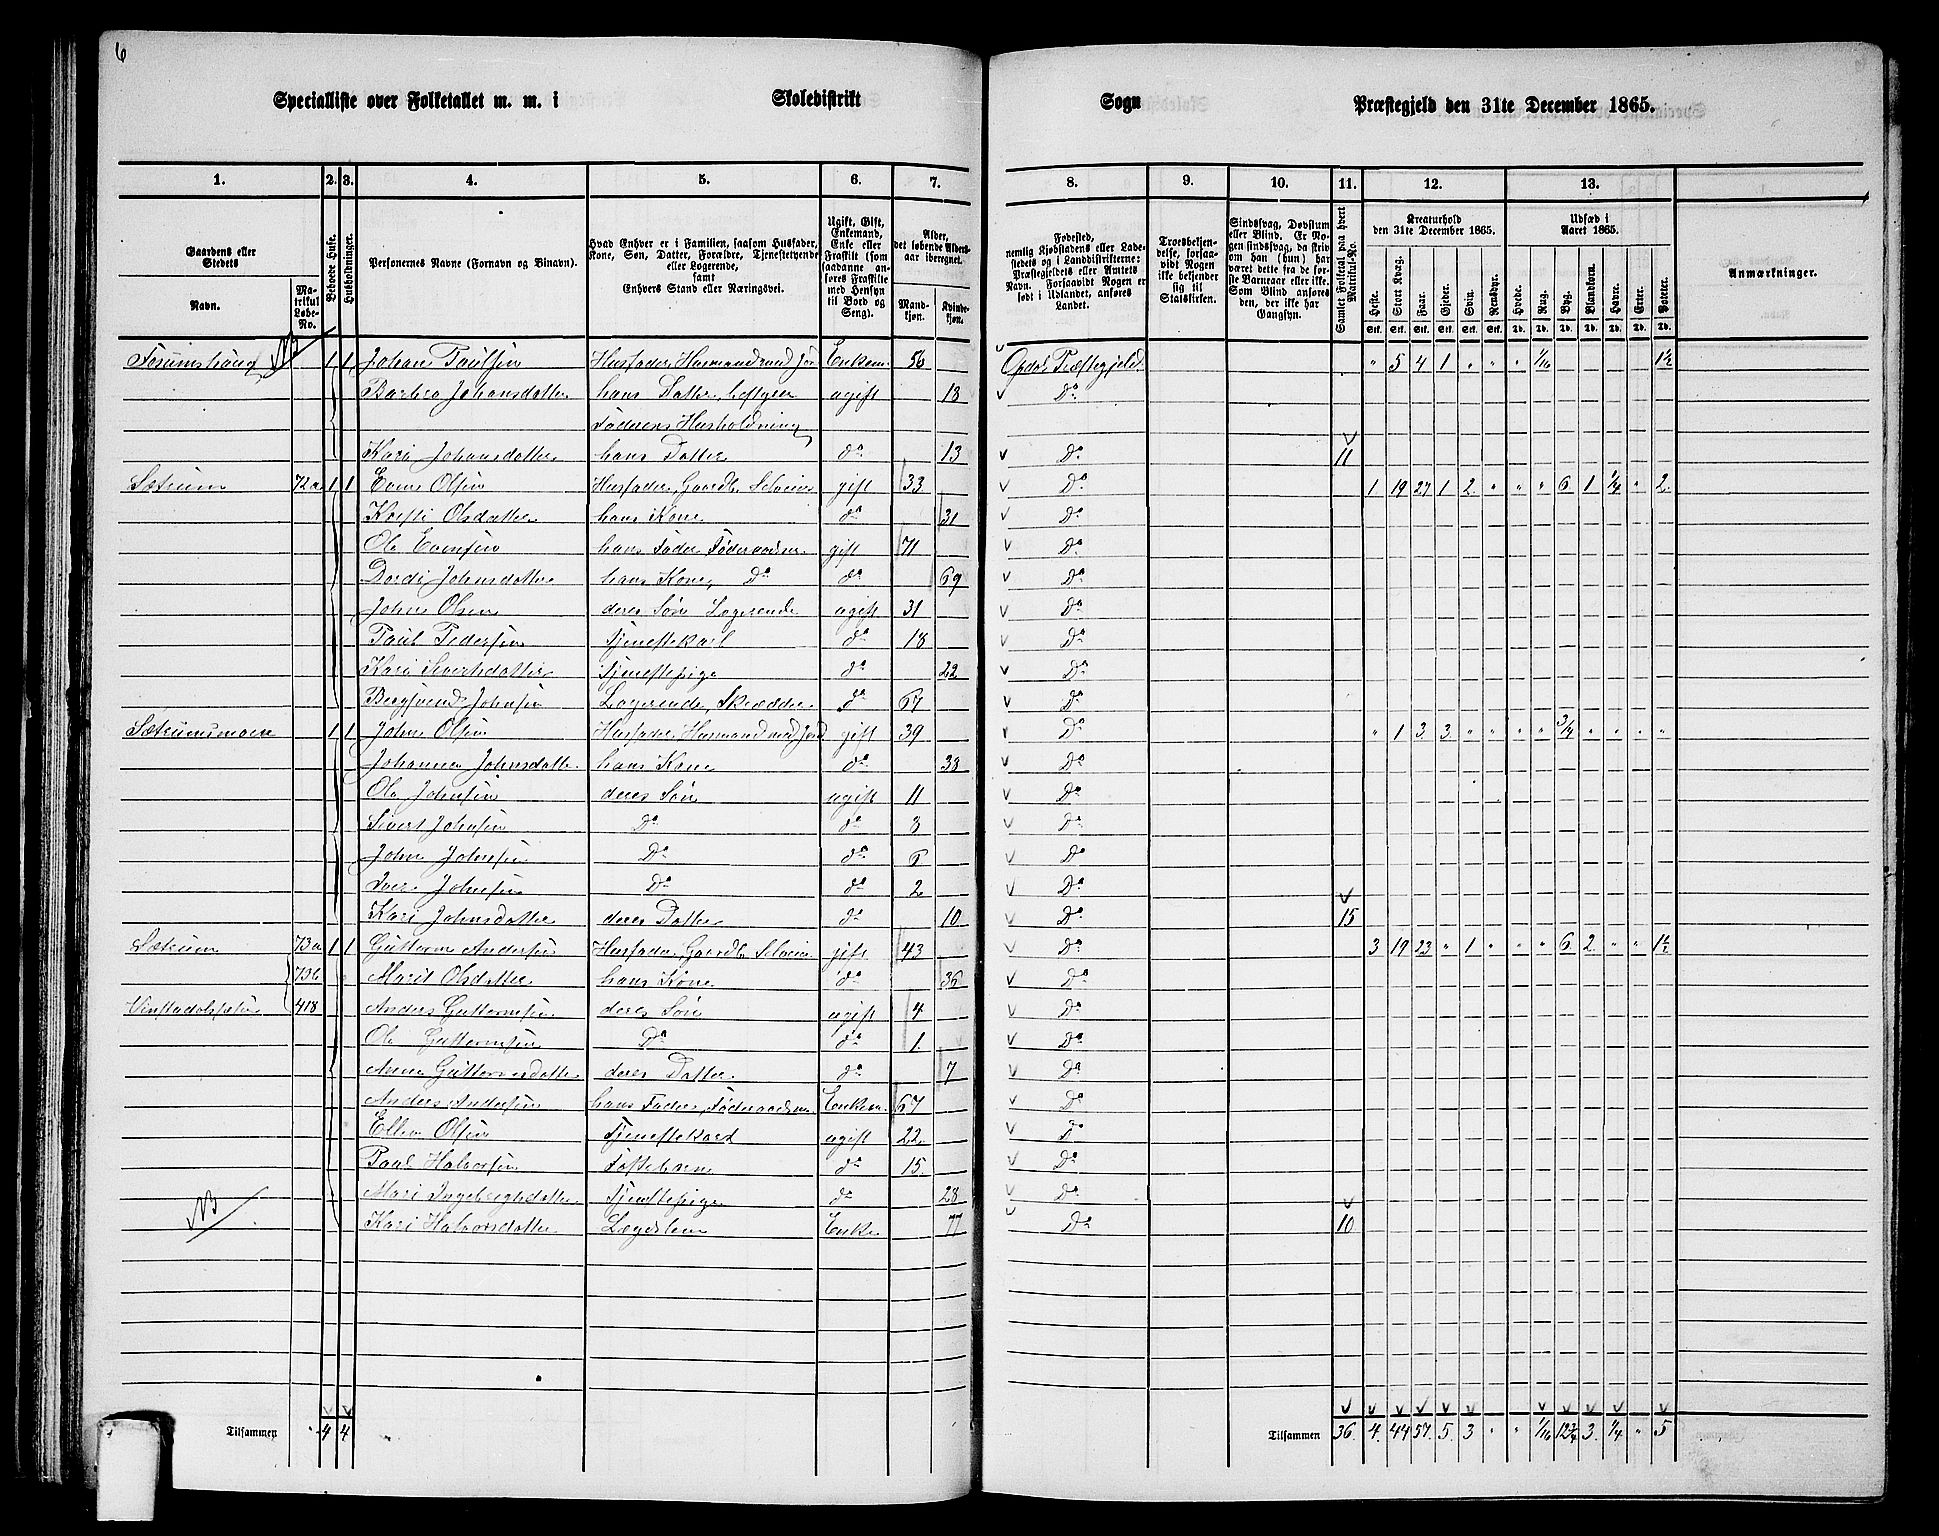 6
Specialliste over Folketallet m. m. i Skoledistrikt Sogn Præstegjeld den 31te December 1865.
1. 2. 3. 4. 5. 6. 7. 8. 9. 10. 11. 12. 13.
Gaardens eller Stedets
Navn.
Matrikul Løbe-No.
Beboede Huse.
Husholdninger.
Personernes Navne (Fornavn og Binavn).
Hvad Enhver er i Familien, saasom Husfader, Kone, Søn, Datter, Forældre, Tjenestetyende eller Logerende, samt Enhvers Stand eller Næringsvei.
Ugift, Gift, Enkemand, Enke eller Fraskilt (som saadanne anføres Fraskilte med Hensyn til Bord og Seng).
Alder, det løbende Aldersaar iberegnet.
Mandkjøn. Kvindekjøn.
Fødested, nemlig Kjøbstadens eller Ladestedets og i Landdistrikterne: Præstegjeldets eller Amtets Navn. Forsaavidt Nogen er født i Udlandet, anføres Landet.
Troesbekjendelse, forsaavidt Nogen ikke bekjender sig til Statskirken.
Sindssvag, Døvstum eller Blind. Er Nogen sindssvag, da skrives om han (hun) har været dette fra de første Barneaar eller ikke. Som Blind anføres den, der ikke har Gangsyn.
Samlet Folketal paa hvert Matrikul-No.
Kreaturhold den 31te December 1865.
Heste. Stort Kvæg. Faar. Gjeder. Svin. Rensdyr.
Udsæd i Aaret 1865.
Hvede. Rug. Byg. Blandkorn. Havre. Erter. Poteter.
Stk. Stk. Stk. Stk. Stk. Stk. Td. Td. Td. Td. Td. Td. Td.
Anmærkninger.
1 1 Johan Paulsen Husfader, Husmand med Jord Enkem. 56 Opdal Præstegjeld " 5 4 1 " " " 1/16 1½
Barbro Johansdatter hans Datter, bestyrer ugift 18 Do
Faderens Husholdning
Kari Johansdatter hans Datter do 13 Do 11
Sætrum 72a 1 1 Even Olsen Husfader, Gaardb. Selveier gift 33 Do 1 19 27 1 2 " " " 6 1 1/4 " 2
Kjersti Olsdatter hans Kone do 31 Do
Ole Evensen hans Fader, Føderaadm. gift 71 Do
Dordi Johnsdatter hans Kone, Do do 69 Do
John Olsen deres Søn Logerende ugift 31 Do
Paul Pedersen Tjenestekarl do 18 Do
Kari Sivertsdatter Tjenestepige do 22 Do
Bergsvend Johnsen Logerende, Skrædder do 67 Do
Sætrumsmoen 1 1 John Olsen Husfader, Husmand med Jord gift 39 Do " 1 3 3 " " " " 3/4 " " " "
Johanna Johnsdatter hans Kone do 38 Do
Ole Johnsen deres Søn ugift 11 Do
Sivert Johnsen Do do 8 Do
John Johnsen Do do 6 Do
Iver Johnsen Do do 2 Do
Kari Johnsdatter deres Datter do 10 Do 15
Sætrum 73a 1 1 Guttorm Andersen Husfader, Gaardb. Selveier gift 43 Do 3 19 23 " 1 " " " 6 2 " " 1½
73b Marit Olsdatter hans Kone do 36 Do
418 Anders Guttormsen deres Søn ugift 4 Do
Ole Guttormsen Do do 1 Do
Anne Guttormsdatter deres Datter do 7 Do
Anders Andersen hans Fader, Føderaadsm. Enkem. 67 Do
Ellev Olsen Tjenestekarl ugift 22 Do
Paul Halvorsen Fosterbarn do 15 Do
Mari Ingebrigtsdatter Tjenestepige do 28 Do
NB Kari Halvorsdatter Lægdslem Enke 77 Do 10
Tilsammen 4 4 Tilsammen 36 4 44 57 5 3 " " 1/16 12¾ 3 1/4 " 5